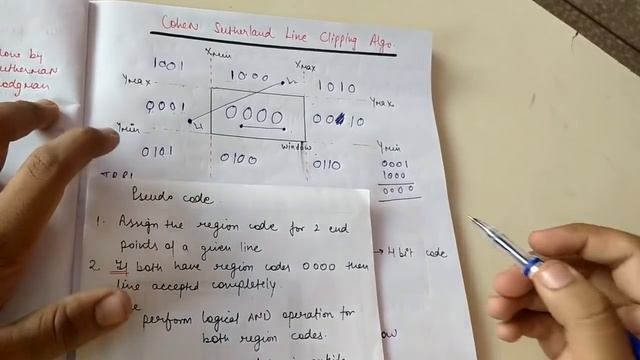 Cohen Sutherland Line Clipping Algo.
done by
Xmin
Xmax
1001
1000
1010
Ymax
Ymax
0001
0000
00 10
Ymin
Ymin
window
0101
0100
0110
0001
1000
0000
TBRL
Pseudo code
1. Assign the region code for 2 end
points of a given line
2. If both have region codes 0000 then
line accepted completely.
→ 4 bit code
perform logical AND operation for
both region codes.